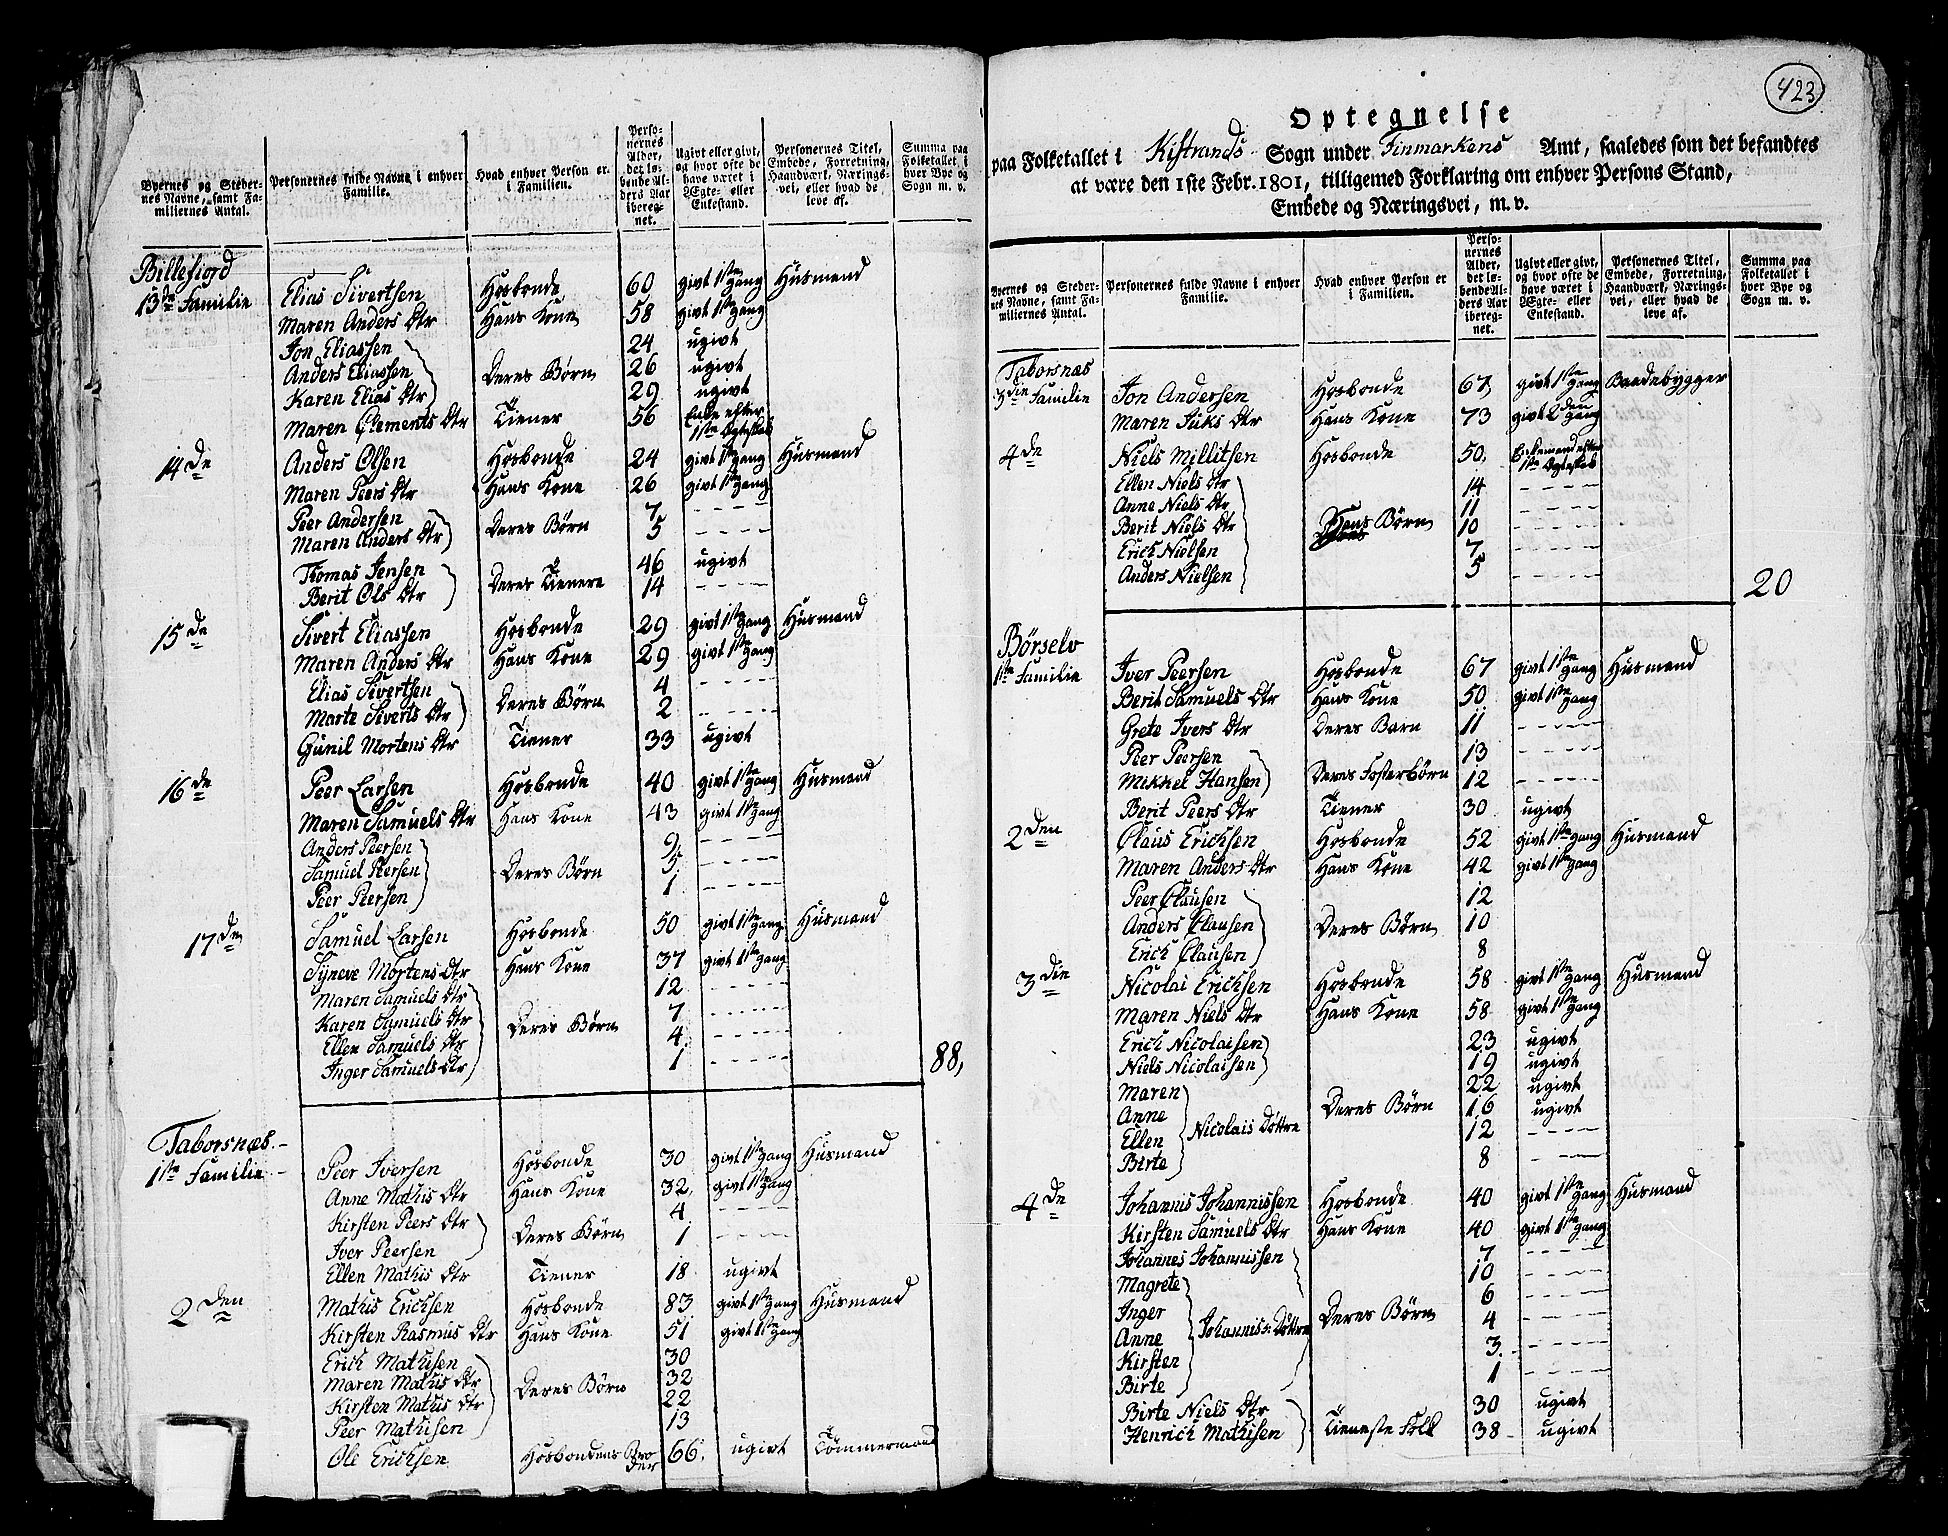 Byernes og Stedernes Navne, samt Familiernes Antal. | Personernes fulde Navne i enhver Familie. | Hvad enhver Person er i Familien. | Personernes Alder, det løbende Alders Aar iberegnet. | Ugivt eller givt, og hvor ofte de have været i Ægte- eller Enkestand. | Personernes Titel, Embede, Forretning, Haandværk, Næringsvei, eller hvad de leve af. | Summa paa Folketallet i hver Bye og Sogn m. v.
Billefiord
13de Familie | Elias Sivertsen | Hosbonde | 60 | givt 1ste gang | Husmand
Maren Anders Dtr | Hans Kone | 58 | givt 1ste gang
Jon Eliassen | 24 | ugivt
Anders Eliassen | Deres Børn | 26 | ugivt
Karen Elias Dtr | 29 | ugivt
Maren Clements Dtr | Tiener | 56 | Enke efter 1ste Egteskab
14de | Anders Olsen | Hosbonde | 24 | givt 1ste gang | Husmand
Maren Peers Dtr | Hans Kone | 26 | givt 1ste gang
Peer Andersen | Deres Børn | 7 | - - - -
Maren Anders Dtr | 5 | - - - -
Thomas Jensen | Deres Tienere | 46 | ugivt
Berit Ols Dtr | 14 | - - - -
15de | Sivert Eliassen | Hosbonde | 29 | givt 1ste gang | Husmand
Maren Anders Dtr | Hans Kone | 29 | givt 1ste gang
Elias Sivertsen | Deres Børn | 4 | - - - -
Marte Siverts Dtr | 2 | - - - -
Gunil Mortens Dtr | Tiener | 33 | ugivt
16de | Peer Larsen | Hosbonde | 40 | givt 1ste gang | Husmand
Maren Samuels Dtr | Hans Kone | 43 | givt 1ste gang
Anders Peersen | 9 | - - - -
Samuel Peersen | Deres Børn | 5 | - - - -
Peer Peersen | 1 | - - - -
17den | Samuel Larsen | Hosbonde | 50 | givt 1ste gang | Husmand
Syneve Mortens Dtr | Hans Kone | 37 | givt 1ste gang
Maren Samuels Dtr | 12 | - - - -
Karen Samuels Dtr | Deres Børn | 7 | - - - -
Ellen Samuels Dtr | 4 | - - - -
Inger Samuels Dtr | 1 | - - - - | 88,
Taborsnæs
1ste Familie | Peer Iversen | Hosbonde | 30 | givt 1ste gang | Husmand
Anne Mathis Dtr | Hans Kone | 32, | givt 1ste gang
Kirsten Peers Dtr | Deres Børn | 4 | - - - -
Iver Peersen | 1
Ellen Mathis Dtr | Tiener | 18 | ugivt
2den | Mathis Erichsen | Hosbonde | 83 | givt 1ste gang | Husmand
Kirsten Rasmus Dtr | Hans Kone | 51 | givt 1ste gang
Erich Mathisen | 30
Maren Mathis Dtr | Deres Børn | 32
Kirsten Mathis Dtr | 22
Peer Mathisen | 13
Ole Erichsen | Hosbondens Broder | 66. | ugivt | Tömmermand
423
Optegnelse
paa Folketallet i Kistrands Sogn under Finmarkens Amt, saaledes som det befandtes
at være den 1ste Febr. 1801, tilligemed Forklaring om enhver Persons Stand,
Embede og Næringsvei, m. v.
Byernes og Stedernes Navne, samt Familiernes Antal. | Personernes fulde Navne i enhver Familie. | Hvad enhver Person er i Familien. | Personernes Alder, det løbende Alders Aar iberegnet. | Ugivt eller givt, og hvor ofte de have været i Ægte- eller Enkestand. | Personernes Titel, Embede, Forretning, Haandværk, Næringsvei, eller hvad de leve af. | Summa paa Folketallet i hver Bye og Sogn m. v.
Taborsnæs
3die Familie | Jon Andersen | Hosbonde | 67, | givt 1ste gang | Baadebygger
Maren Juks Dtr | Hans Kone | 73 | givt 2den gang
4de | Niels Millitsen | Hosbonde | 50, | Enkemand efter 1ste Egteskab
Ellen Niels Dtr | 14 | - - - -
Anne Niels Dtr | 11 | - - - -
Berit Niels Dtr | Hans Børn | 10 | - - - -
Erich Nielsen | 7 | - - - -
Anders Nielsen | 5 | - - - - | 20
Börselv
1ste Familie | Iver Peersen | Hosbonde | 67 | givt 1ste gang | Husmand
Berit Samuels Dtr | Hans Kone | 50 | givt 1ste gang
Grete Ivers Dtr | Deres Barn | 11 | - - - -
Peer Peersen | Deres Fosterbörn | 13 | - - - -
Mikkel Hansen | 12 | - - - -
Berit Peers Dtr | Tiener | 30 | ugivt
2den | Claus Erichsen | Hosbonde | 52 | givt 1ste gang | Husmand
Maren Anders Dtr | Hans Kone | 42 | givt 1ste gang
Peer Clausen | 12
Anders Clausen | Deres Børn | 10
Erich Clausen | 8
3die | Nicolai Erichsen | Hosbonde | 58 | givt 1ste gang | Husmand
Maren Niels Dtr | Hans Kone | 58 | givt 1ste gang
Erich Nicolaisen | 23 | ugivt
Niels Nicolaisen | 19 | ugivt
Maren | 22 | ugivt
Anne | Nicolais Döttre | Deres Börn | 16 | ugivt
Ellen | 12 | - - - -
Birte | 8 | - - - -
4de | Johannis Johannissen | Hosbonde | 40 | givt 1ste gang | Husmand
Kirsten Samuels Dtr | Hans Kone | 40 | givt 1ste gang
Johannes Johannissen | 7 | - - - -
Magrete | 10 | - - - -
Inger | Deres Børn | 6 | - - - -
Anne | Johannis: Döttre | 4 | - - - -
Kirsten | 3. | - - - -
Birte | 1 | - - - -
Birte Niels Dtr | Tieneste Folk | 30 | ugivt
Henrich Mathisen | 38 | ugivt